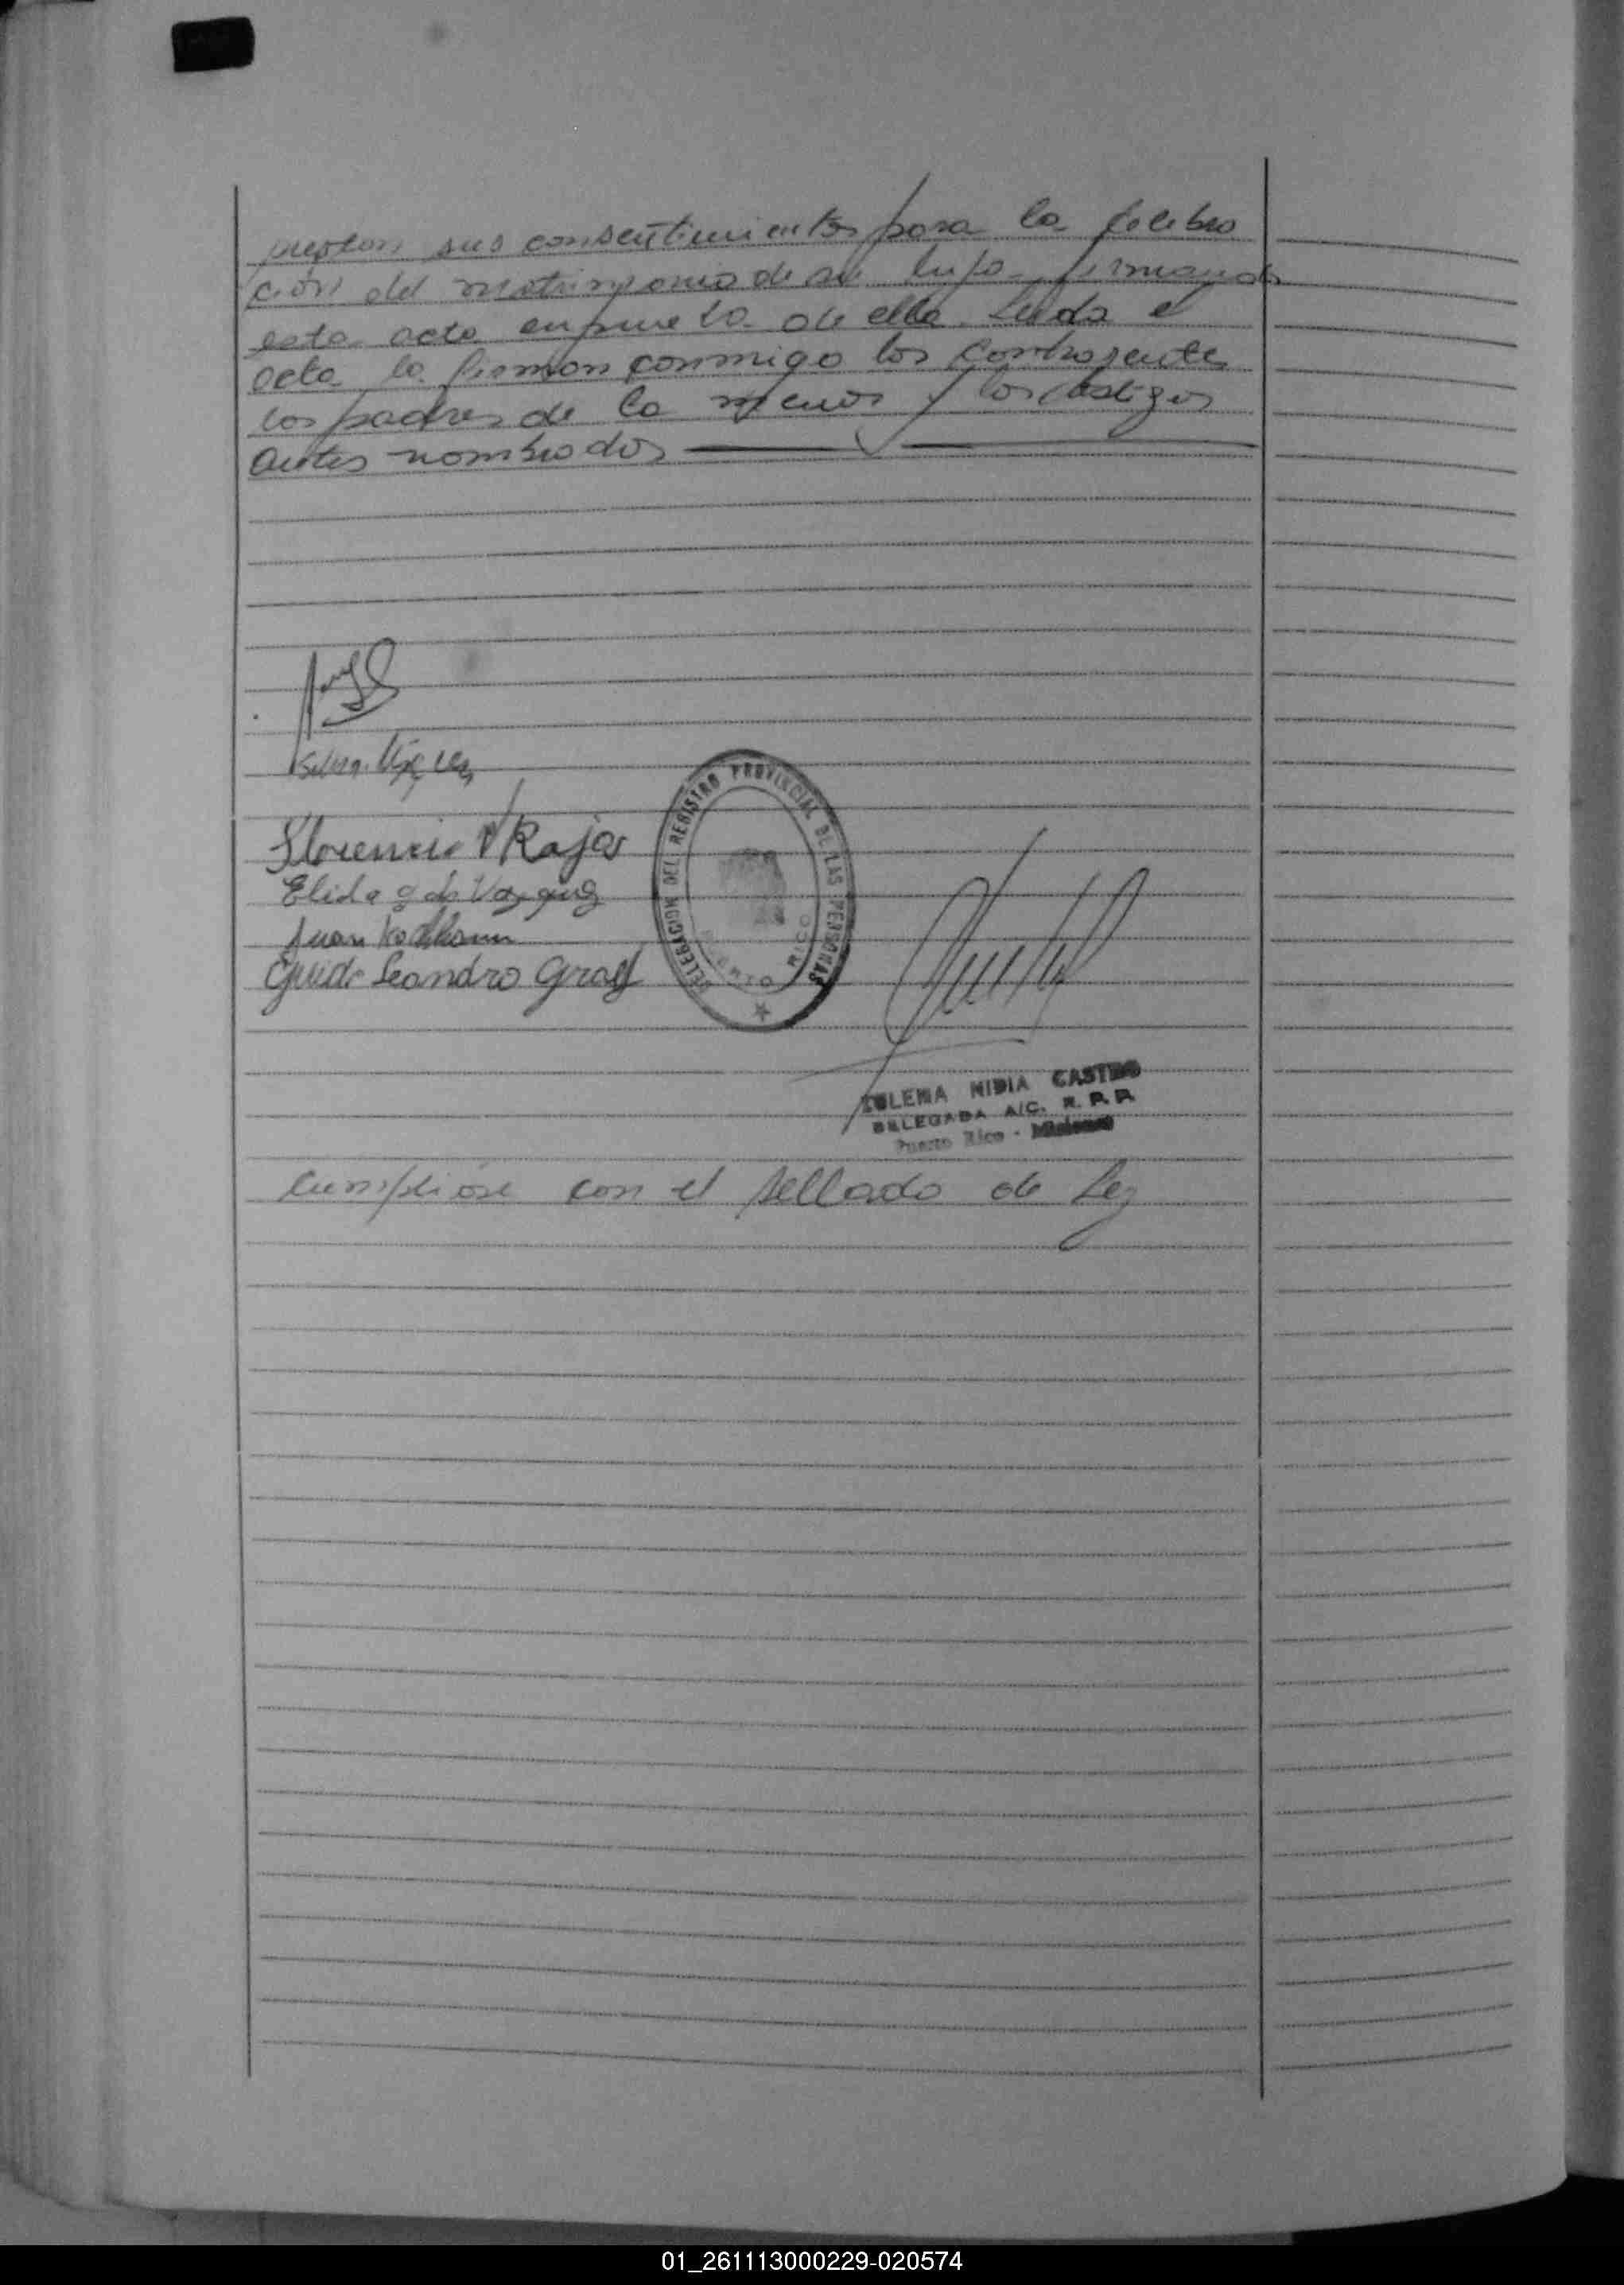 prestan sus consentimientos para la celebra
ción del matrimonio de su hija firmando
esta acta en prueba de ella. Leida el
acta la firman conmigo los contrayentes
los padres de la menor y los testigos
antes nombrados
Florencio Rojas
Elida G de Vazquez
Juan
Guido Leandro Graef
DELEGACION DEL REGISTRO PROVINCIAL DE LAS PERSONAS
PUERTO RICO
ZULEMA NIDIA CASTRO
DELEGADA A/C. R. P. P.
Puerto Rico - Misiones
Cumplióse con el sellado de Ley
01_261113000229-020574